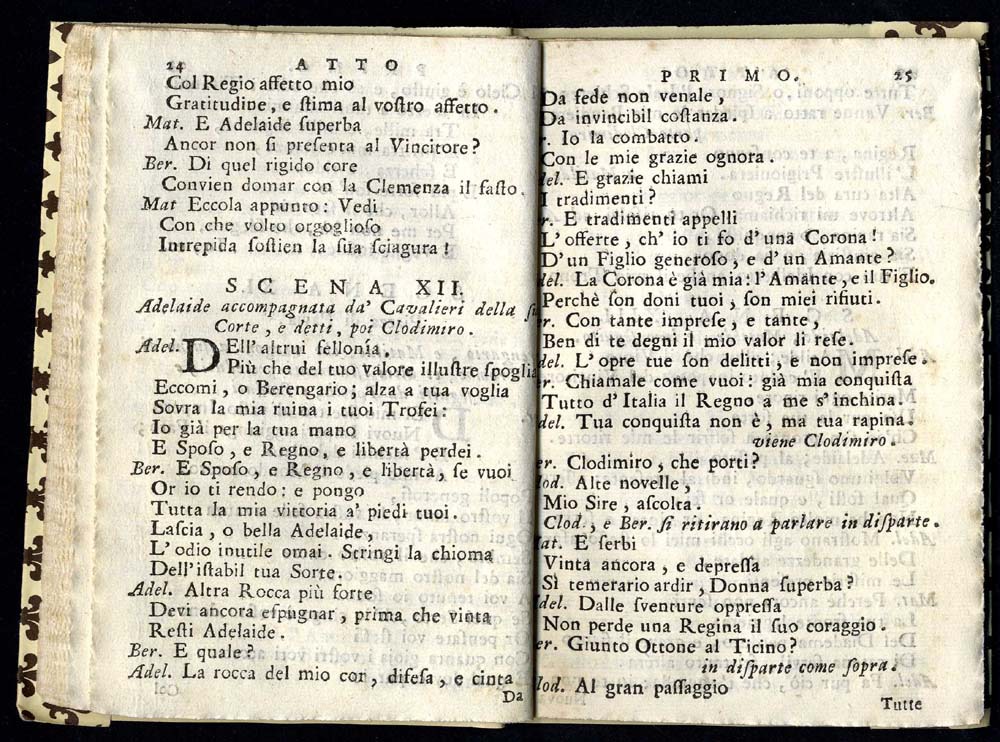 24 ATTO
Col Regio affetto mio
Gratitudine, e ſtima al voſtro affetto.
Mat. E Adelaide ſuperba
Ancor non ſi preſenta al Vincitore?
Ber. Di quel rigido core
Convien domar con la Clemenza il faſto.
Mat Eccola appunto: Vedi
Con che volto orgoglioſo
Intrepida ſoſtien la ſua ſciagura!
SCENA XII.
Adelaide accompagnata da' Cavalieri della
Corte, e detti, poi Clodimiro.
Adel. DEll' altrui fellonía,
Più che del tuo valore illuſtre ſpoglia
Eccomi, o Berengario; alza a tua voglia
Sovra la mia ruina i tuoi Trofei:
Io già per la tua mano
E Spoſo, e Regno, e libertà perdei.
Ber. E Spoſo, e Regno, e libertà, ſe vuoi
Or io ti rendo: e pongo
Tutta la mia vittoria a' piedi tuoi.
Laſcia, o bella Adelaide,
L' odio inutile omai. Stringi la chioma
Dell'iſtabil tua Sorte.
Adel. Altra Rocca più forte
Devi ancora eſpugnar, prima che vinta
Reſti Adelaide.
Ber. E quale?
Adel. La rocca del mio cor, difeſa, e cinta
Da
PRIMO. 25
Da fede non venale,
Da invincibil coſtanza.
r. Io la combatto.
Con le mie grazie ognora.
del. E grazie chiami
I tradimenti?
r. E tradimenti appelli
L' offerte, ch' io ti fo d'una Corona!
D'un Figlio generoſo, e d'un Amante?
del. La Corona è già mia: l'Amante, e il Figlio.
Perchè ſon doni tuoi, ſon miei rifiuti.
er. Con tante impreſe, e tante,
Ben di te degni il mio valor li reſe.
del. L' opre tue ſon delitti, e non impreſe.
er. Chiamale come vuoi: già mia conquiſta
Tutto d' Italia il Regno a me s'inchina.
del. Tua conquiſta non è, ma tua rapina.
viene Clodimiro.
er. Clodimiro, che porti?
lod. Alte novelle,
Mio Sire, aſcolta.
Clod., e Ber. ſi ritirano a parlare in diſparte.
at. E ſerbi
Vinta ancora, e depreſſa
Sì temerario ardir, Donna ſuperba?
del. Dalle ſventure oppreſſa
Non perde una Regina il ſuo coraggio.
er. Giunto Ottone al Ticino?
in diſparte come ſopra.
lod. Al gran paſſaggio
Tutte